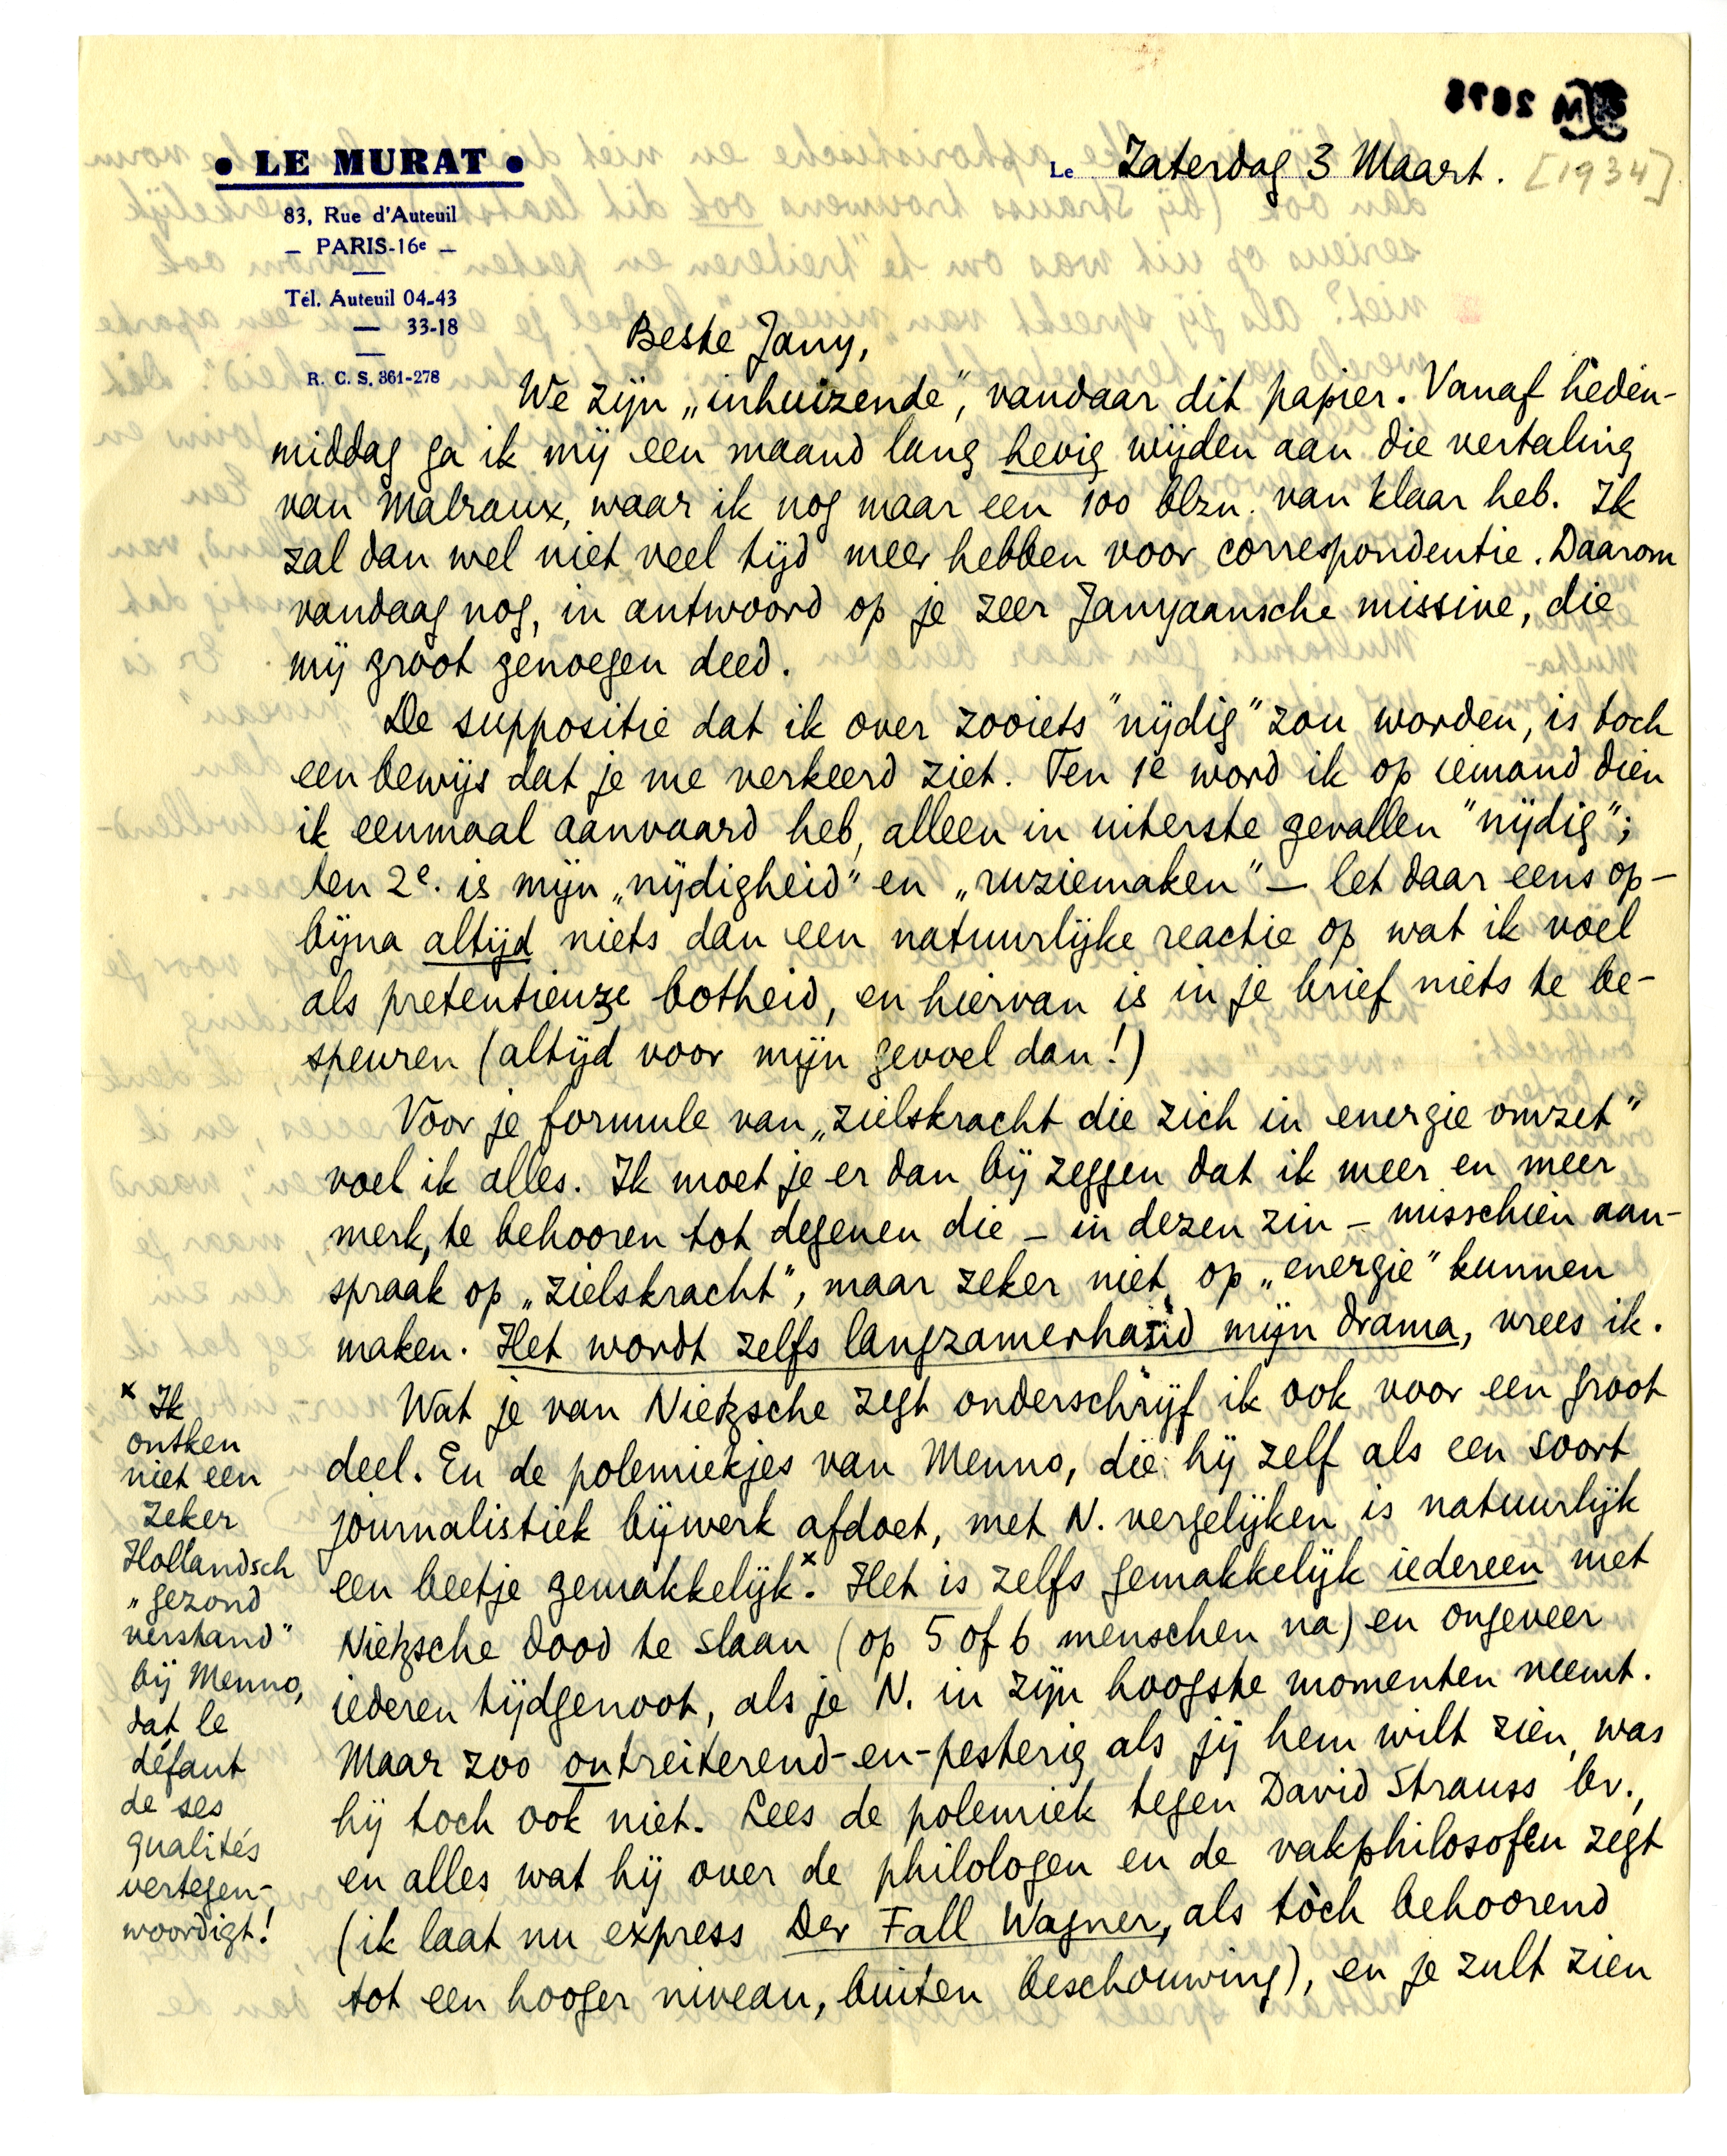 • LE MURAT •
83, Rue d'Auteuil
— PARIS-16e —
Tél. Auteuil 04-43
— 33-18
R. C. S. 361-278
Le Zaterdag 3 Maart. [1934]
Beste Jany,
We zijn „inhuizende", vandaar dit papier. Vanaf heden-
middag ga ik mij een maand lang hevig wijden aan die vertaling
van Malraux, waar ik nog maar een 100 blzn. van klaar heb. Ik
zal dan wel niet veel tijd meer hebben voor correspondentie. Daarom
vandaag nog, in antwoord op je zeer Janyaansche missive, die
mij groot genoegen deed.
De suppositie dat ik over zooiets "nijdig" zou worden, is toch
een bewijs dat je me verkeerd ziet. Ten 1e word ik op iemand dien
ik eenmaal aanvaard heb, alleen in uiterste gevallen "nijdig";
ten 2e. is mijn „nijdigheid" en „ruziemaken" — let daar eens op —
bijna altijd niets dan een natuurlijke reactie op wat ik voel
als pretentieuze botheid, en hiervan is in je brief niets te be-
speuren (altijd voor mijn gevoel dan!)
Voor je formule van „zielskracht die zich in energie omzet"
voel ik alles. Ik moet je er dan bij zeggen dat ik meer en meer
merk, te behooren tot degenen die — in dezen zin — misschien aan-
spraak op „zielskracht", maar zeker niet op „energie" kunnen
maken. Het wordt zelfs langzamerhand mijn drama, vrees ik.
Wat je van Nietzsche zegt onderschrijf ik ook voor een groot
deel. En de polemiekjes van Menno, die hij zelf als een soort
journalistiek bijwerk afdoet, met N. vergelijken is natuurlijk
een beetje gemakkelijk.x Het is zelfs gemakkelijk iedereen met
Nietzsche dood te slaan (op 5 of 6 menschen na) en ongeveer
iederen tijdgenoot, als je N. in zijn hoogste momenten neemt.
Maar zoo ontreiterend-en-pesterig als jij hem wilt zien, was
hij toch ook niet. Lees de polemiek tegen David Strauss bv.,
en alles wat hij over de philologen en de vakphilosofen zegt
(ik laat nu express Der Fall Wagner, als tòch behoorend
tot een hooger niveau, buiten beschouwing), en je zult zien
x Ik
ontken
niet een
zeker
Hollandsch
„gezond
verstand"
bij Menno,
dat le
défaut
de ses
qualités
vertegen-
woordigt!